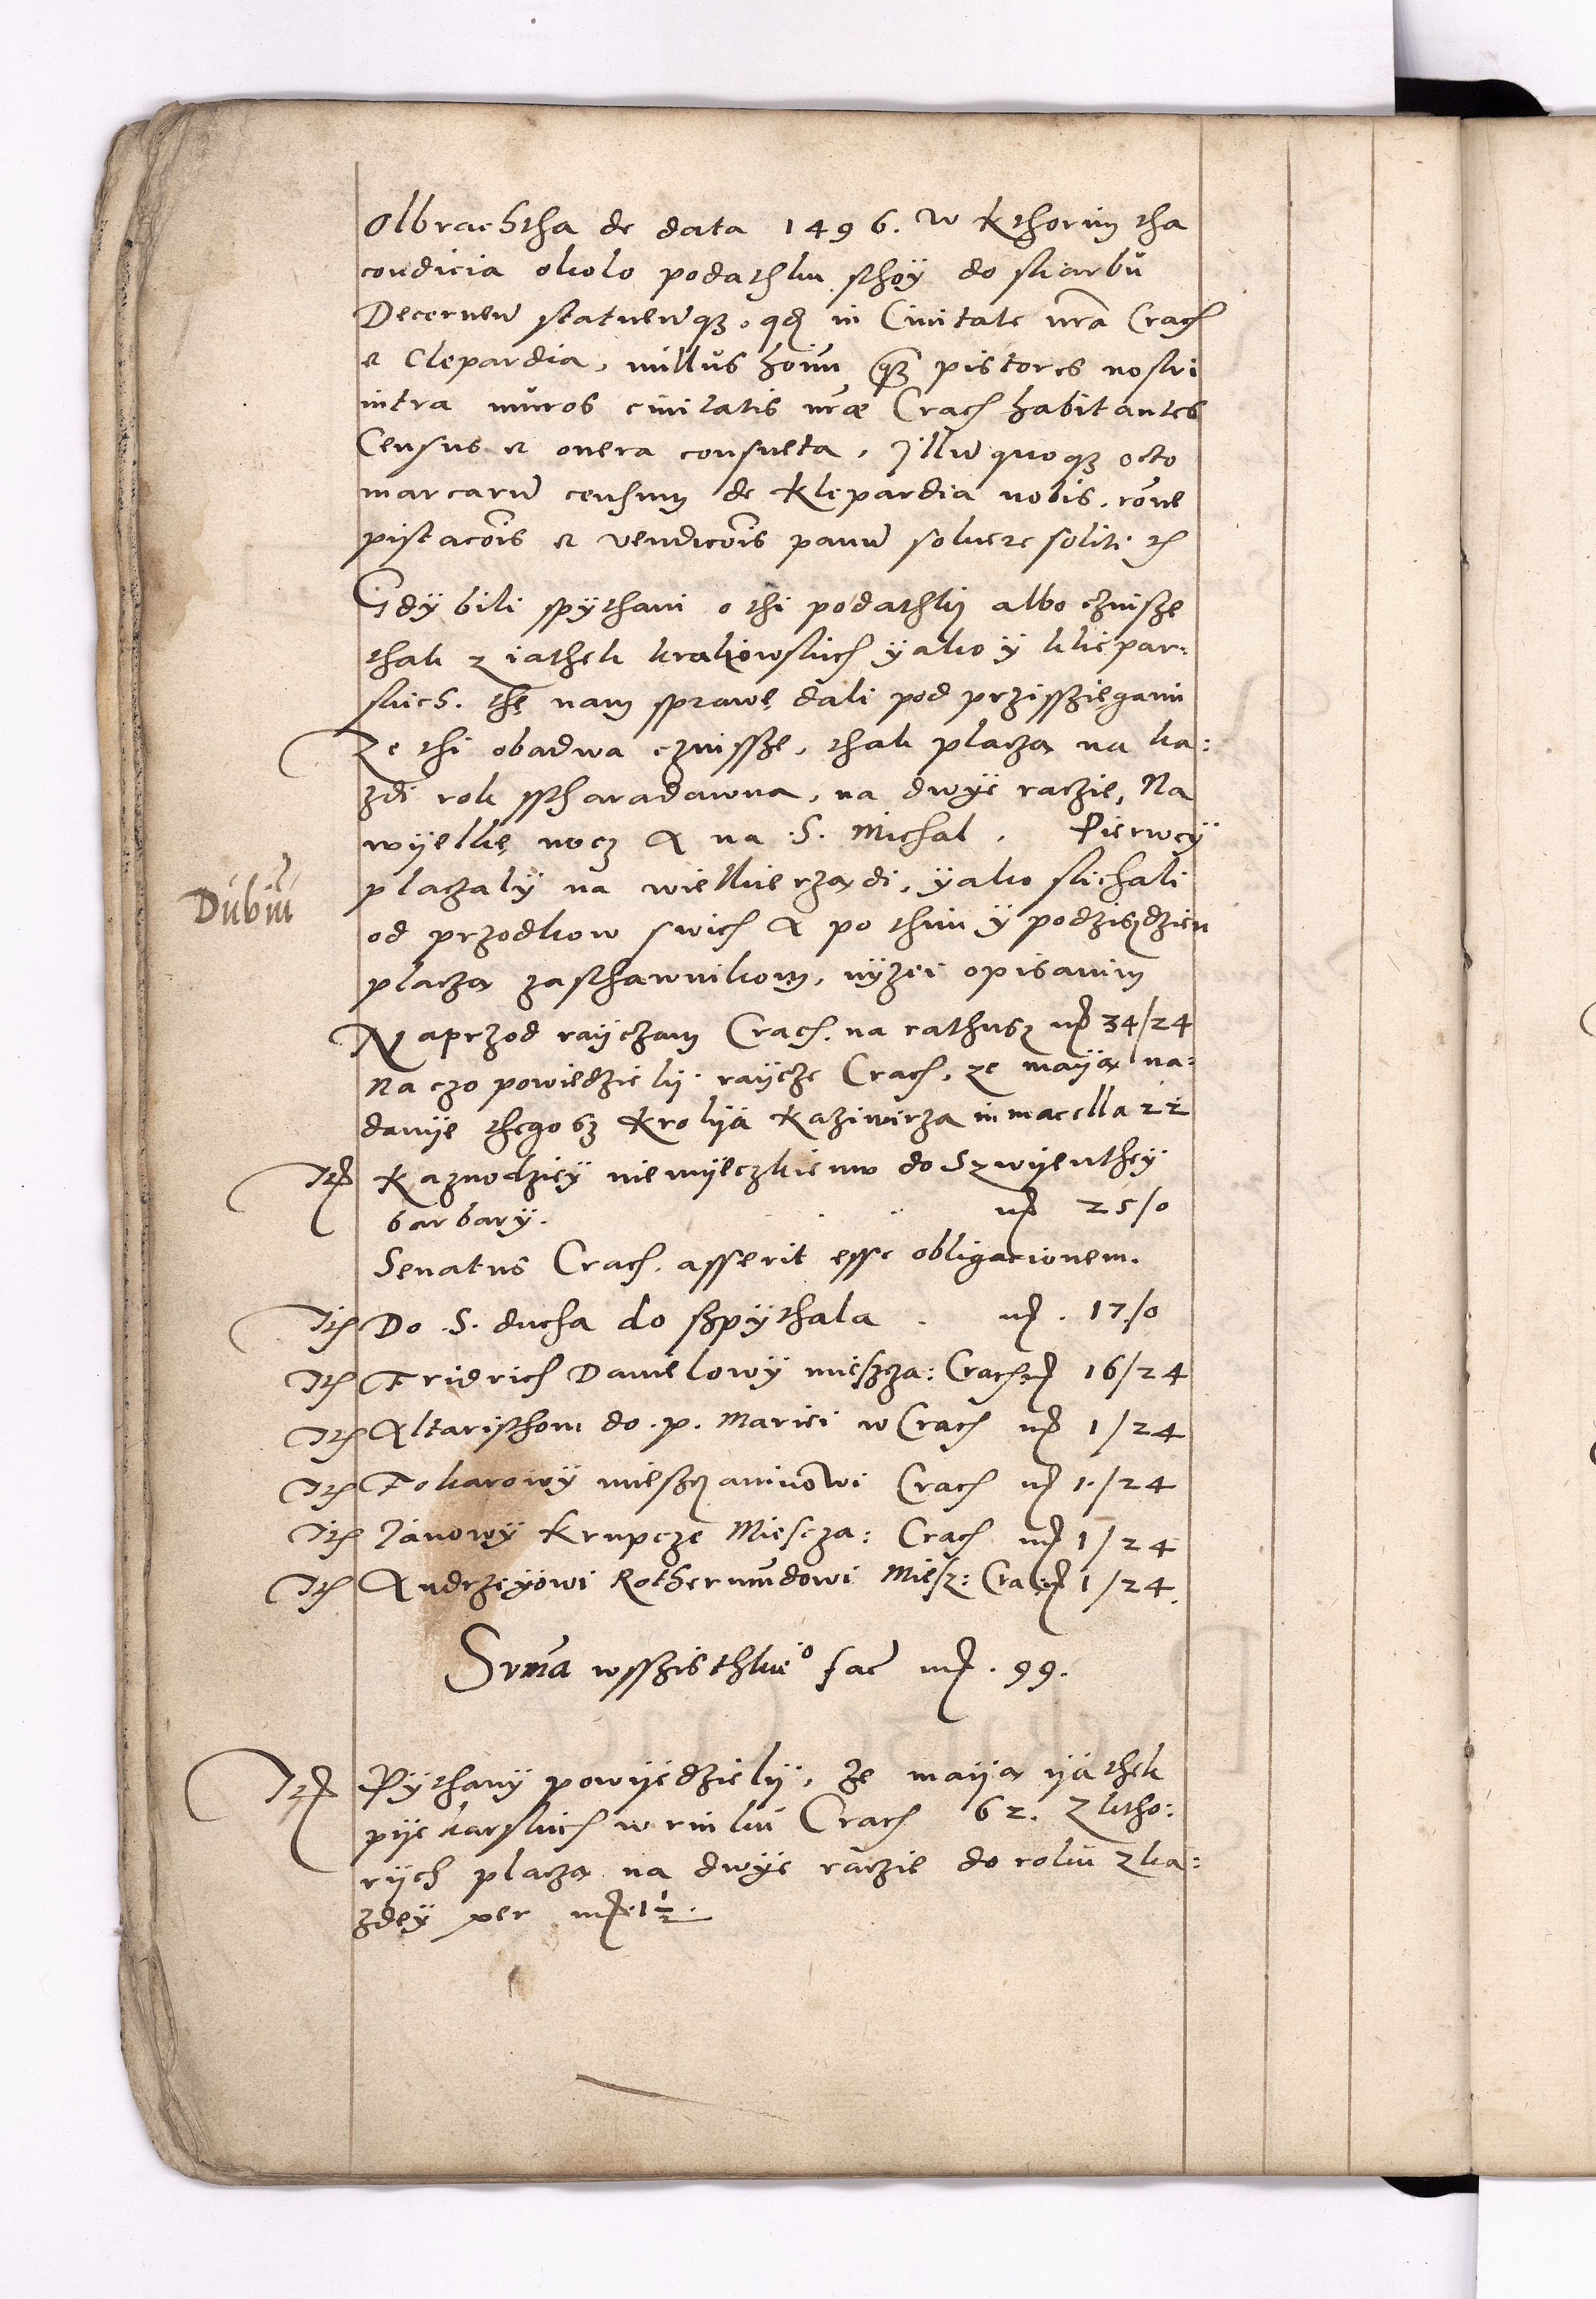 Olbrachtha de data 1496. w kthorim tha
condicia okolo podathku sthoÿ do skarbu
Decernen̄ statuen̄qꝫ. qđ in Ciuitate nr̄a Cracͪ
et Clepardia, nullus hoīm qꝫ pistores nostri
intra muros ciuitatis nr̄ae Cracͪ habitantes
Census et onera consueta, Illū quoqꝫ octo
marcarū censum de Klepardia nobis, rōne
pistacōis et vendicōis panū soluere soliti etc
Gdÿ bili spÿthani o thi podathkÿ albo czinsze
thak z iathek krakowskich ÿako ÿ kliepar:
skich. thę nam sprawę dali pod przisszięgami
Ze thi obadwa czinssze, thak placzą na ka:
zdi rok sstharadawna, na dwÿe raczie, Na
wÿelkę nocz A na .S. Michal. Pierweÿ
Dubiū
placzalÿ na wielkierządi, ÿako slichali
od przodkow swich A po thim ÿ podziszdzien
placzą zasthawnikom, nÿzei opisanim
Naprzod raÿczam Cracͪ. na rathusz mͬ 34/24
Na czo powiedzielÿ raÿcze Cracͪ, ze maÿą na:
danÿe thegosz Krolÿa Kazimirza in macella 22
Itͫ Kaznodzieÿ niemÿeczkiemu do Szwÿentheÿ
barbarÿ. mͬ 25/0
Senatus Cracͪ. asserit esse obligacionem.
Itͫ Do .S. ducha do sspÿthala . mͬ . 17/0
Itͫ Fridrich Danielowÿ miesszcza: Cracͪ mͬ 16/24
Itͫ Altaristhom do .p. Mariei w Cracͪ mͬ 1/24
Itͫ Fokarowÿ mieszczaninowi Cracͪ mͬ 1/24
Itͫ Janowÿ Krupcze Miescza: Cracͪ mͬ 1/24
Itͫ Andrzeÿowi Rothermūdowi Miesz: Cracͪ mͬ 1/24.
Sum̄a wsszisthkieº fac̄ mͬ . 99.
Itͫ Pÿthanÿ powÿedzielÿ, ze maÿą ÿathek
pÿekarskich w rinku Cracͪ 62. Z ktho:
rÿch placzą na dwÿe raczie do roku z ka:
zdeÿ per mͬ 1½.